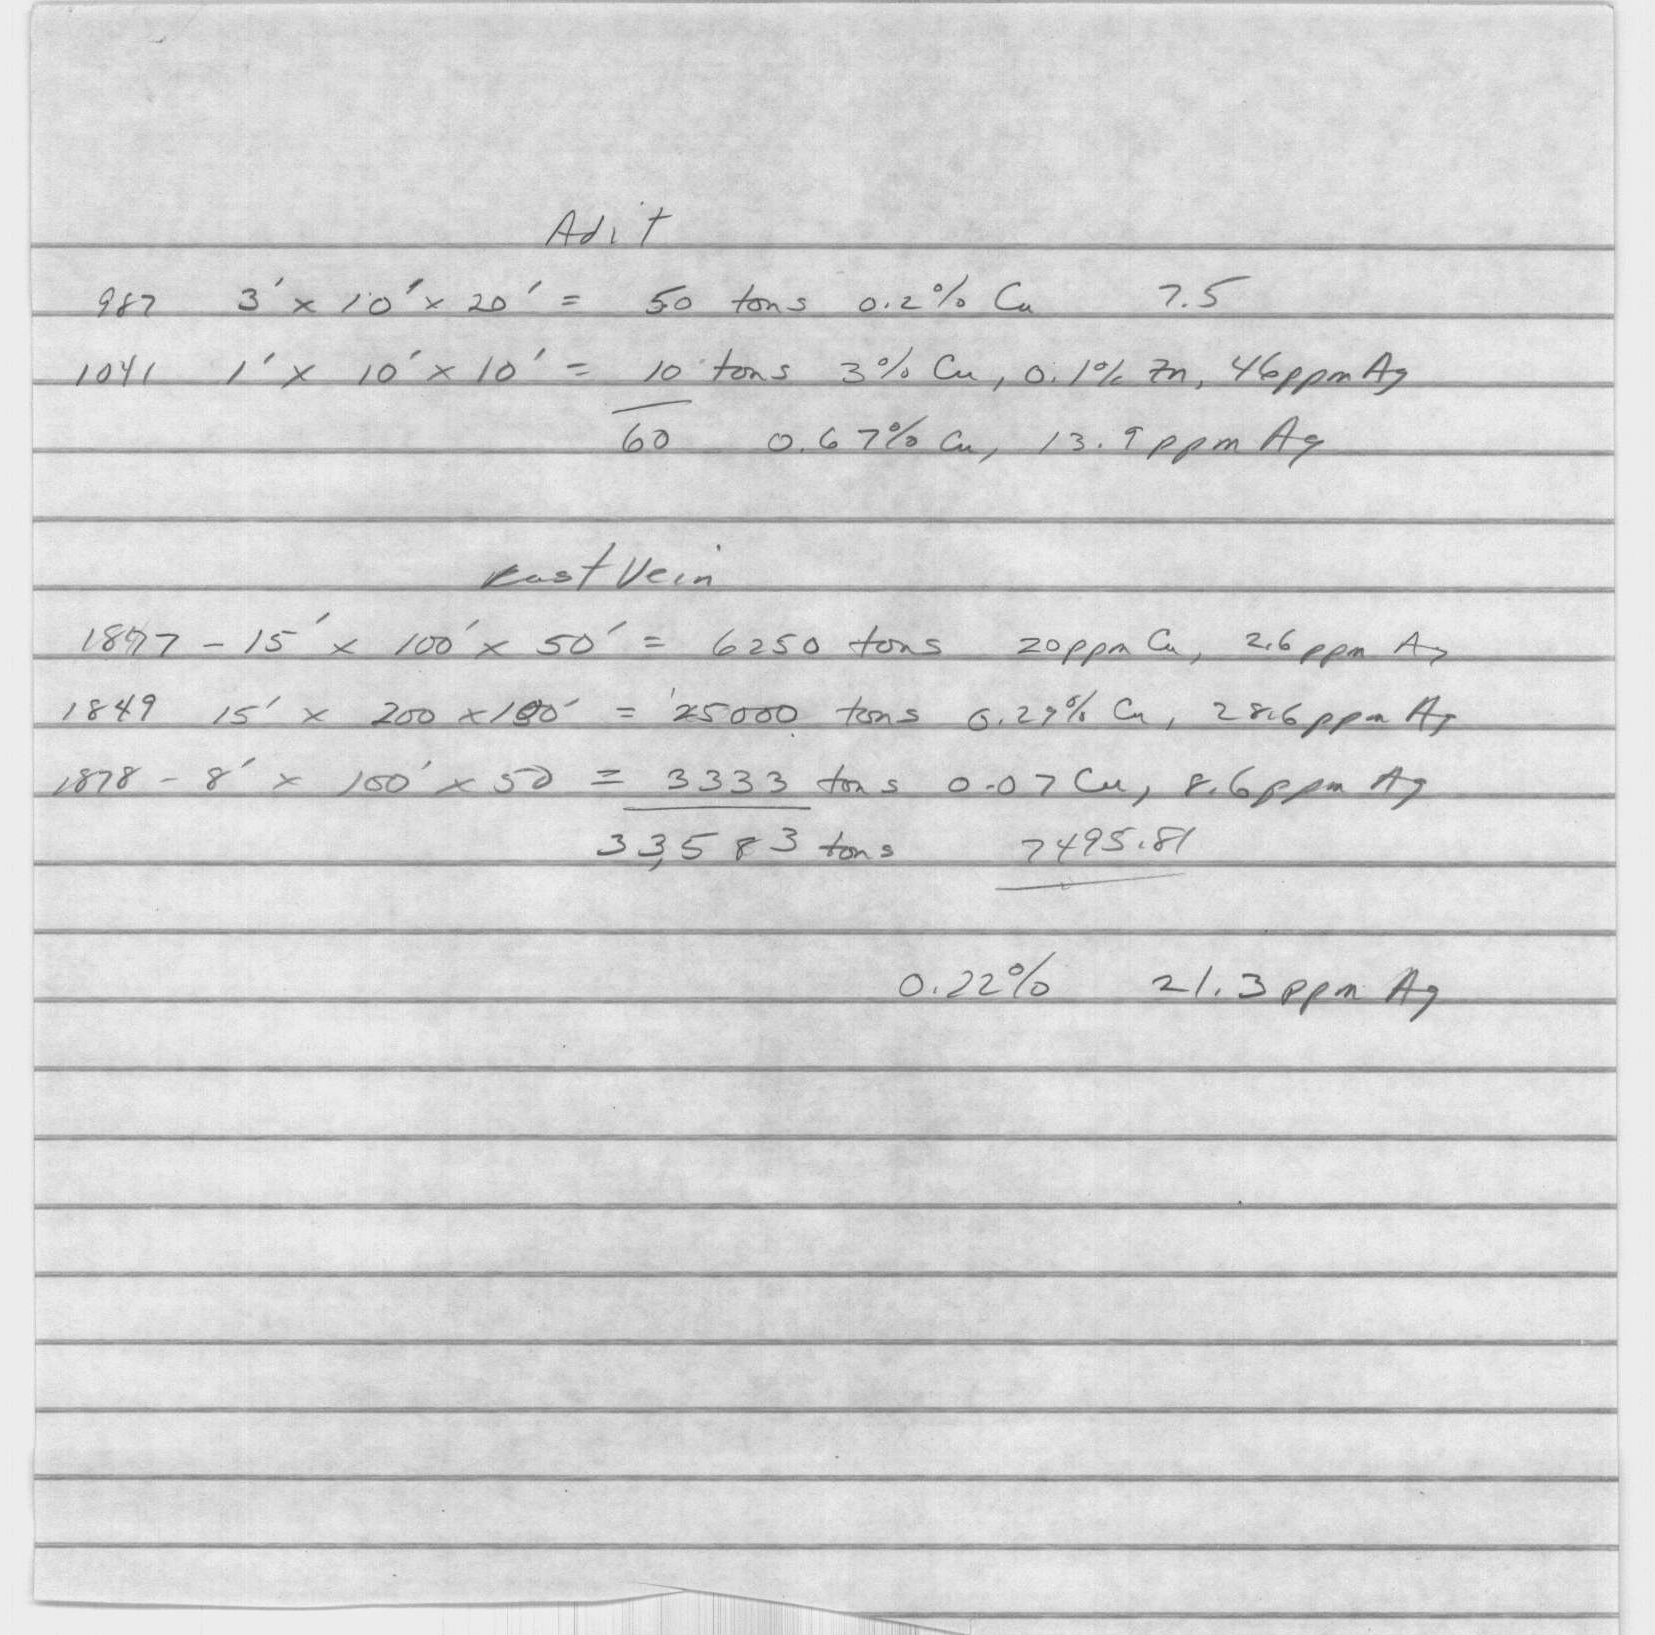 Adit
987 3' x 10' x 20' = 50 tons 0.2% Cu 7.5
1041 1' x 10' x 10' = 10 tons 3% Cu, 0.1% Zn, 46ppm Ag
60 0.67% Cu, 13.9 ppm Ag
East Vein
- 15' x 100' x 50' = 6250 tons 20ppm Cu, 2.6 ppm Ag
1849 15' x 200 x 100' = 25000 tons 0.29% Cu, 28.6 ppm Ag
1878 - 8' x 100' x 50 = 3333 tons 0.07 Cu, 8.6ppm Ag
33,583 tons 7495.81
0.22% 21.3 ppm Ag